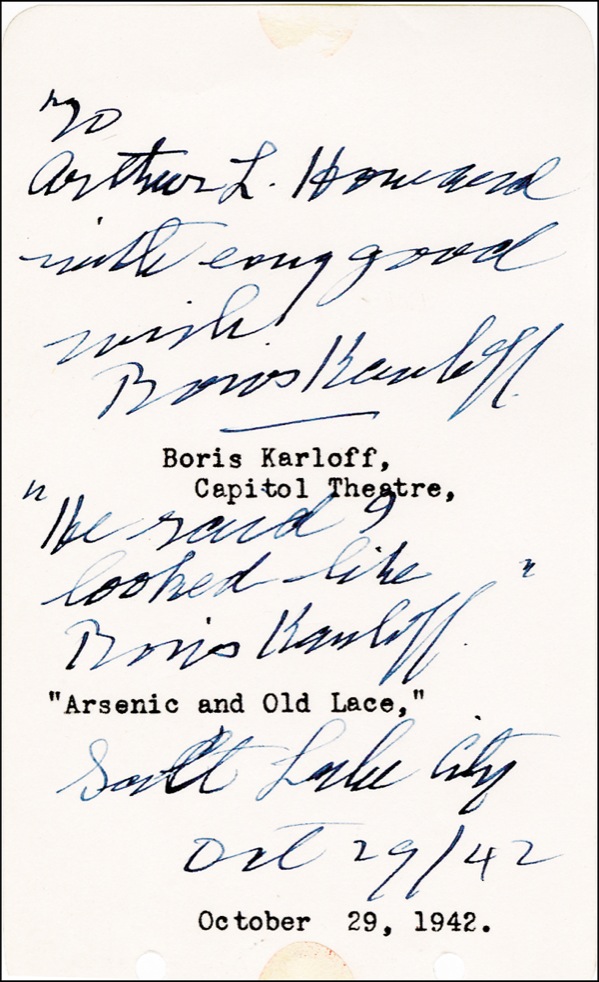 "To
Arthur L. Howard
with every good
wish.
Boris Karloff
Boris Karloff,
Capitol Theatre,
"He said I
looked like
Boris Karloff."
"Arsenic and Old Lace,"
Salt Lake City
Oct 29/42
October 29, 1942.